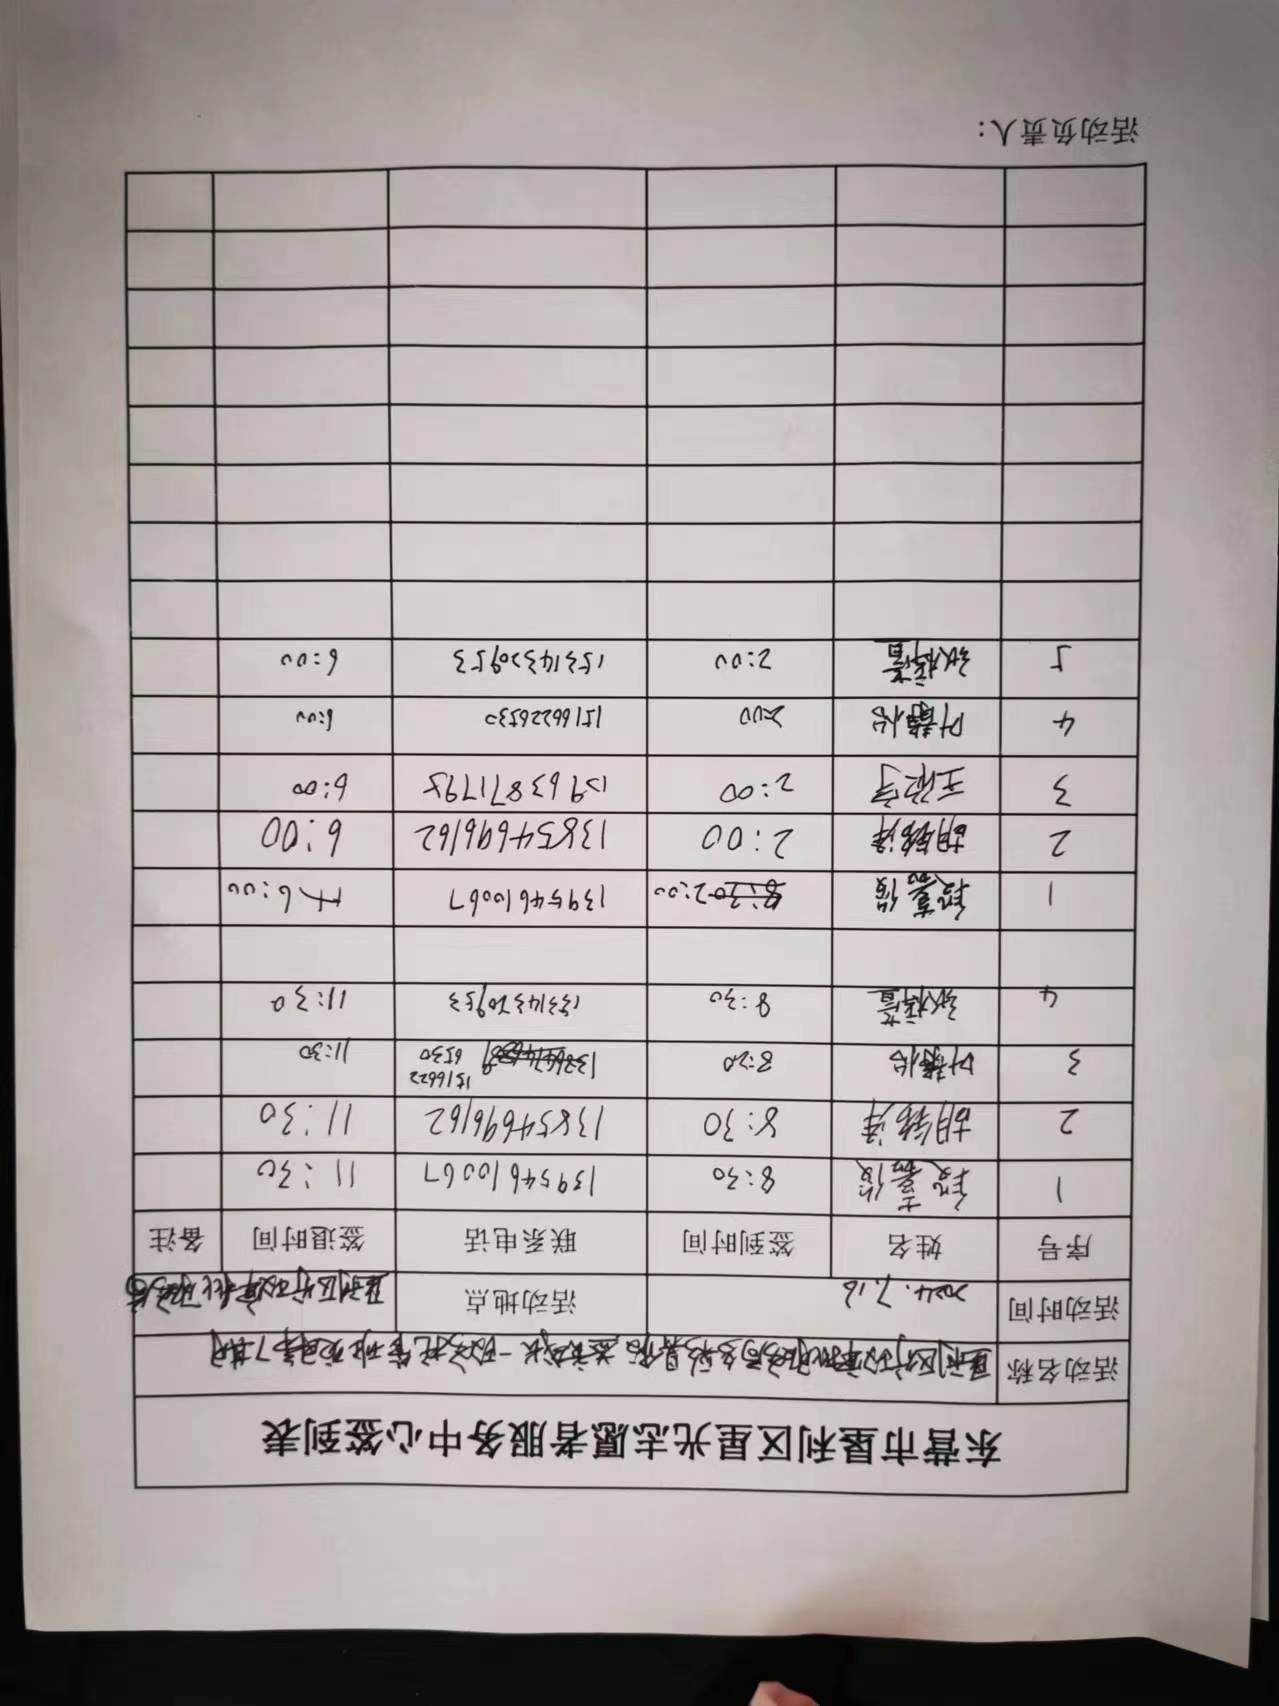 东营市垦利区星光志愿者服务中心签到表
活动名称 垦利区行政审批服务局多彩暑假 益童成长
活动时间 2024.7.16 活动地点 垦利区行政审批服务局
序号 姓名 签到时间 联系电话 签退时间 备注
1 8:30 13954610067 11:30
2 胡铭洋 8:30 13854696162 11:30
3 叶静怡 8:20 15166226530 11:30
4 8:30 15314320953 11:30
1 2:00 13954610067 6:00
2 胡铭洋 2:00 13854696162 6:00
3 2:00 15963871795 6:00
4 叶静怡 2:00 15166226530 6:00
5 2:00 15314320953 6:00
活动负责人：